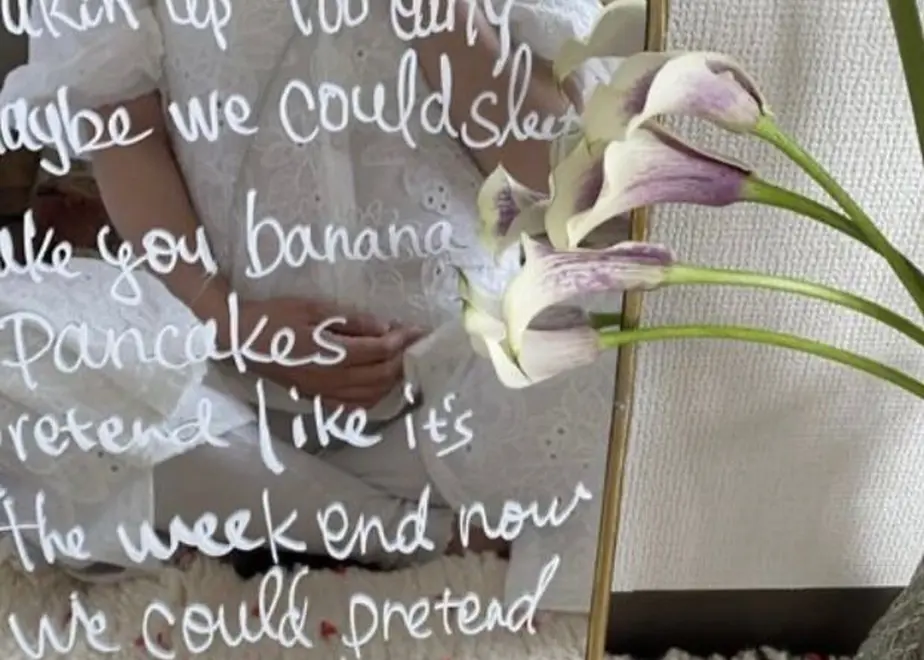 up Too early
we could sleep
you banana
Pancakes
pretend like it's
the weekend now
we could pretend